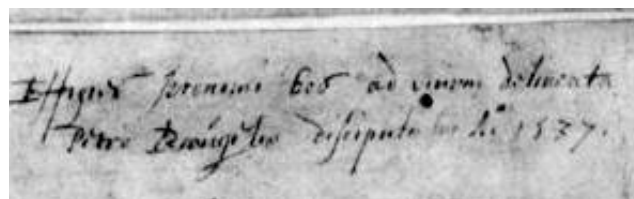 Effigies Jeronimi bos ad vivum delineata
Petro Breugeles discipulo An° 1537.